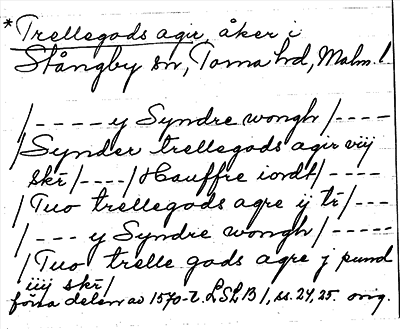 *Trellegods agir, åker i
Stångby sn, Torna hd, Malm. l.
/---- y Syndre wongh /----
/Synder trellegods agir viij
skr̄ /----/ Hauffre iordt/----
/Tuo trellegods agre ij tr̄ /---
/--- y Syndre wongh /-----
/Tuo trelle gods agre j pund
iiij skr̄ /
första delen av 1570-t. LSLB 1, ss. 24, 25. orig.